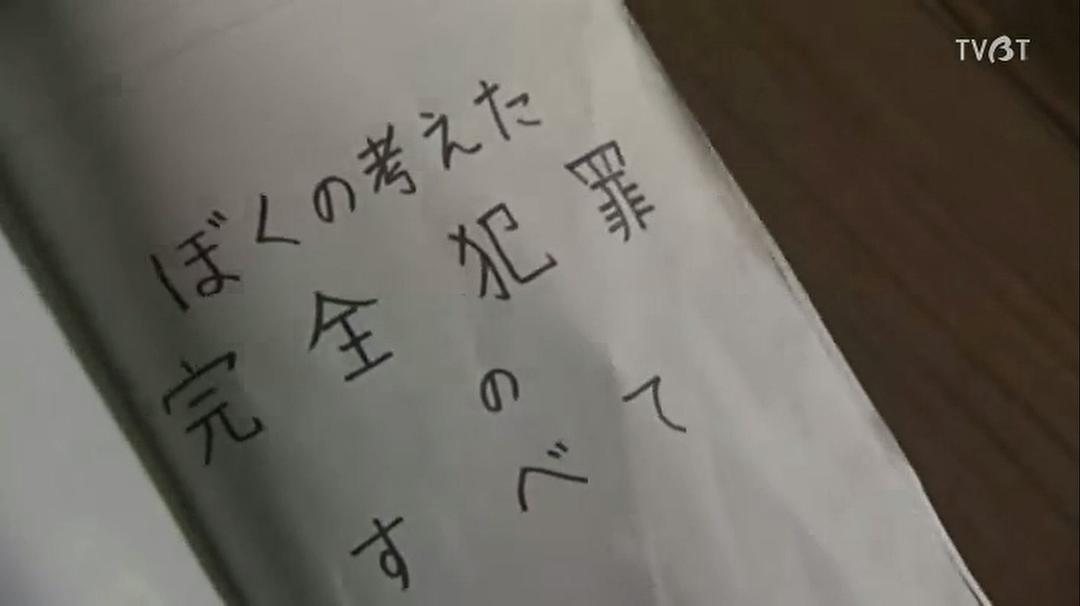 TVBT
ぼくの考えた
完全犯罪
の
すべて